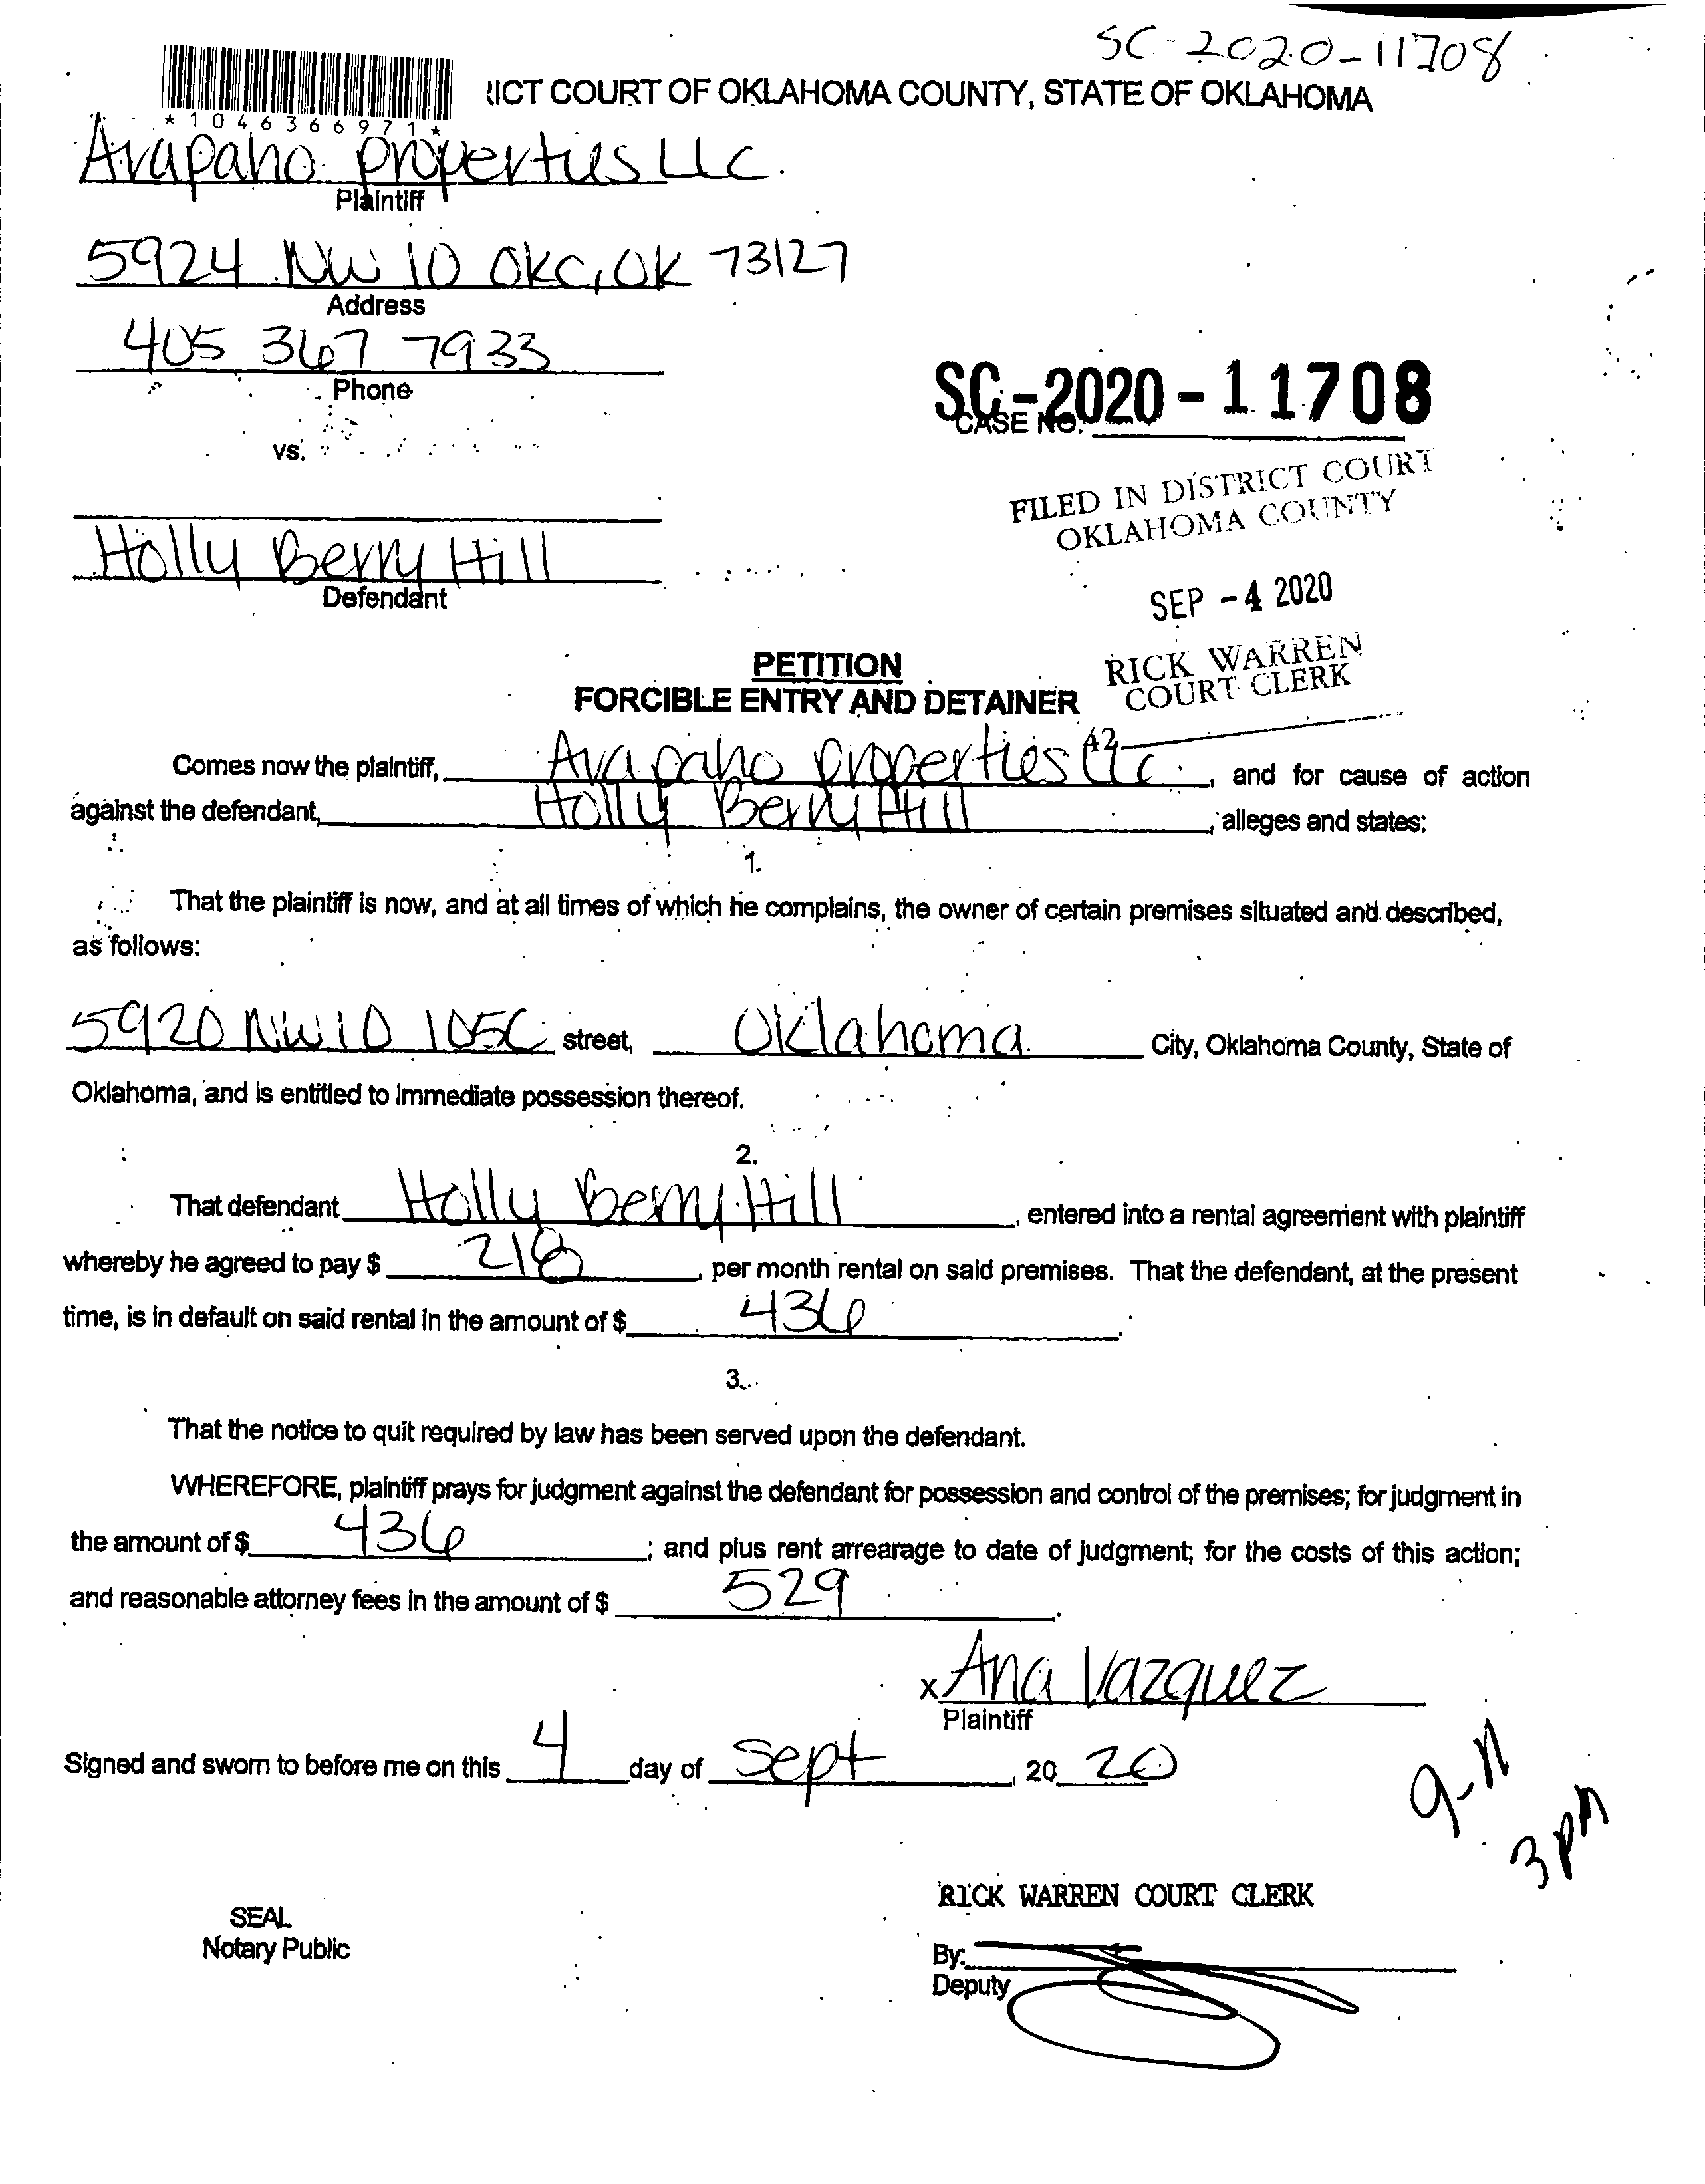 SC-2020-11708
ICT COURT OF OKLAHOMA COUNTY, STATE OF OKLAHOMA
*1046366971*
Arapaho properties LLC
Plaintiff
5924 NW 10 OKC, OK 73127
Address
405 367 7933
Phone
SC-2020-11708
CASE NO.
vs.
FILED IN DISTRICT COURT
OKLAHOMA COUNTY
Holly Berry Hill
Defendant
SEP -4 2020
PETITION
FORCIBLE ENTRY AND DETAINER
RICK WARREN
COURT CLERK
42
Comes now the plaintiff, Arapaho properties LLC, and for cause of action
against the defendant, Holly Berry Hill, alleges and states:
1.
That the plaintiff is now, and at all times of which he complains, the owner of certain premises situated and described,
as follows:
5920 NW 10 105C street, Oklahoma City, Oklahoma County, State of
Oklahoma, and is entitled to immediate possession thereof.
2.
That defendant Holly Berry Hill, entered into a rental agreement with plaintiff
whereby he agreed to pay $ 218, per month rental on said premises. That the defendant, at the present
time, is in default on said rental in the amount of $ 436.
3.
That the notice to quit required by law has been served upon the defendant.
WHEREFORE, plaintiff prays for judgment against the defendant for possession and control of the premises; for judgment in
the amount of $ 436; and plus rent arrearage to date of judgment; for the costs of this action;
and reasonable attorney fees in the amount of $ 529.
x Ana Vazquez
Plaintiff
Signed and sworn to before me on this 4 day of Sept, 20 20
9-11
3 pm
RICK WARREN COURT CLERK
SEAL
Notary Public
By:
Deputy